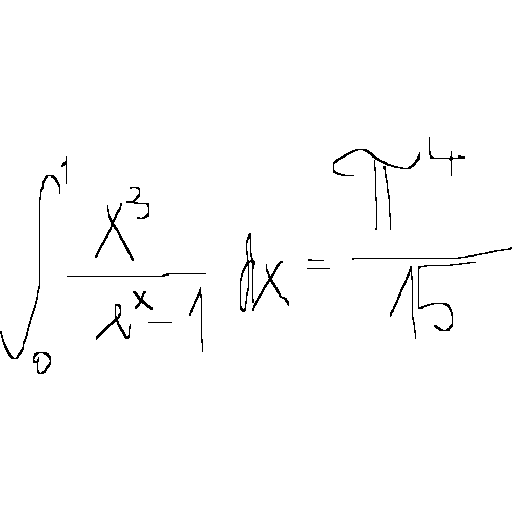 \int_0^1 \frac{x^3}{e^x-1} dx = \frac{\pi^4}{15}